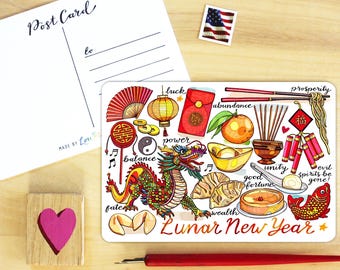 Post Card
to
luck
prosperity
abundance
福
power
balance
unity
good
fortune
evil
spirits be
gone!
fate
wealth
Lunar New Year